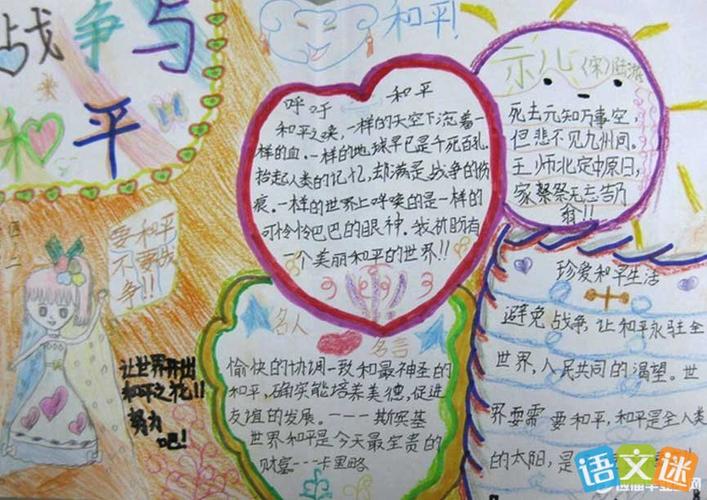 战争与
和平
和平!
呼吁 和平
和平之唤,一样的天空下流着一
样的血。一样的地球早已是千疮百孔,
拾起人类的记忆,却满是战争的伤
痕。一样的世界上呼唤的是一样的
可怜巴巴的眼神。我祈盼有
一个美丽和平的世界!!
示儿 (宋)陆游
死去元知万事空,
但悲不见九州同。
王师北定中原日,
家祭无忘告乃
翁!!
要和平
不要战
争!!
让世界开出
和平之花!!
努力
吧!
名人 名言
愉快的协调一致和最神圣的
和平,确实能培养美德,促进
友谊的发展。----斯宾基
世界和是今天最宝贵的
财富---卡里略
珍爱和平生活
避免战争,让和平永驻全
世界,人民共同的渴望。世
界要需要和平,和平是全人类
的太阳,是
语文迷